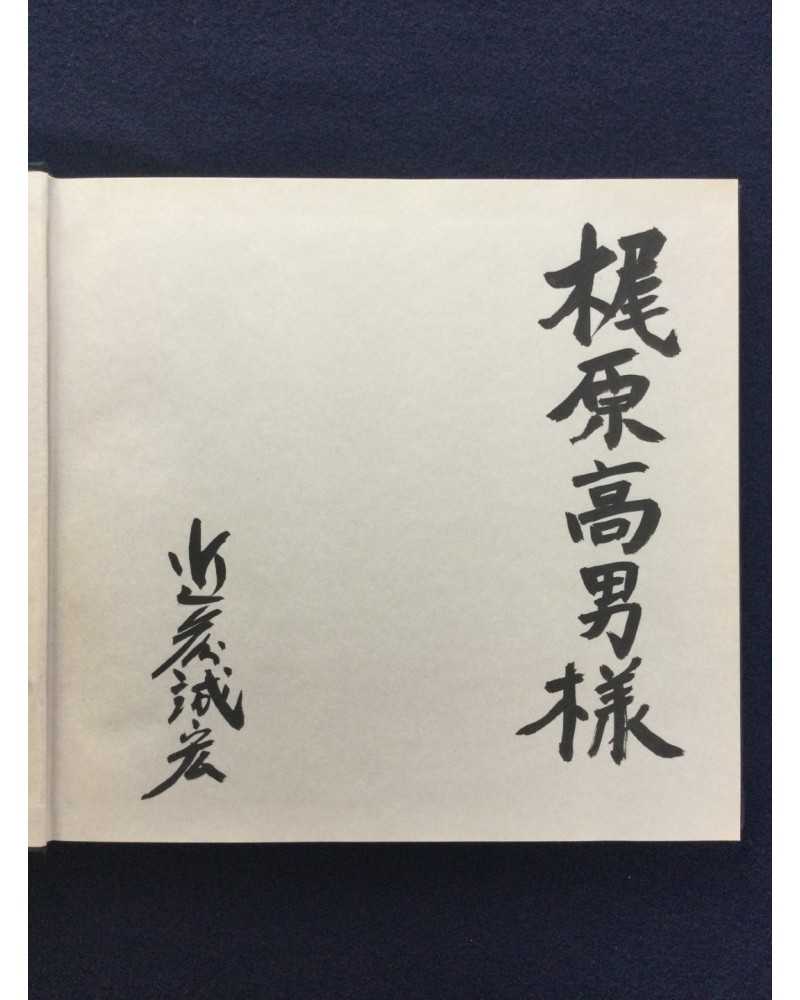 梶原高男様
近藤誠宏